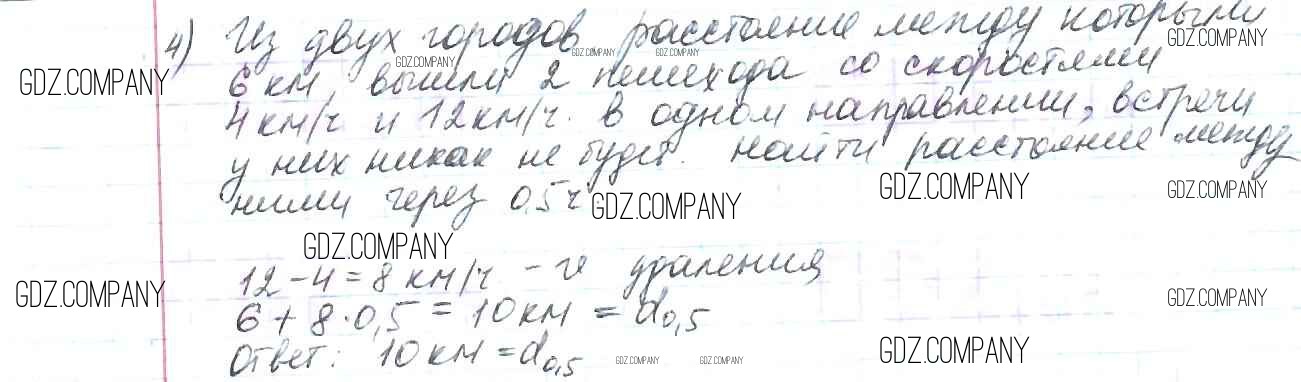 4) Из двух городов расстояние между которыми
6 км, вышли 2 пешехода со скоростями
4 км/ч и 12 км/ч. в одном направлении, встречи
у них никак не будет. Найти расстояние между
ними через 0,5 ч
12 - 4 = 8 км/ч - v удаления
6 + 8 · 0,5 = 10 км = d0,5
Ответ: 10 км = d0,5
GDZ.COMPANY
GDZ.COMPANY
GDZ.COMPANY
GDZ.COMPANY
GDZ.COMPANY
GDZ.COMPANY
GDZ.COMPANY
GDZ.COMPANY
GDZ.COMPANY
GDZ.COMPANY
GDZ.COMPANY
GDZ.COMPANY
GDZ.COMPANY
GDZ.COMPANY